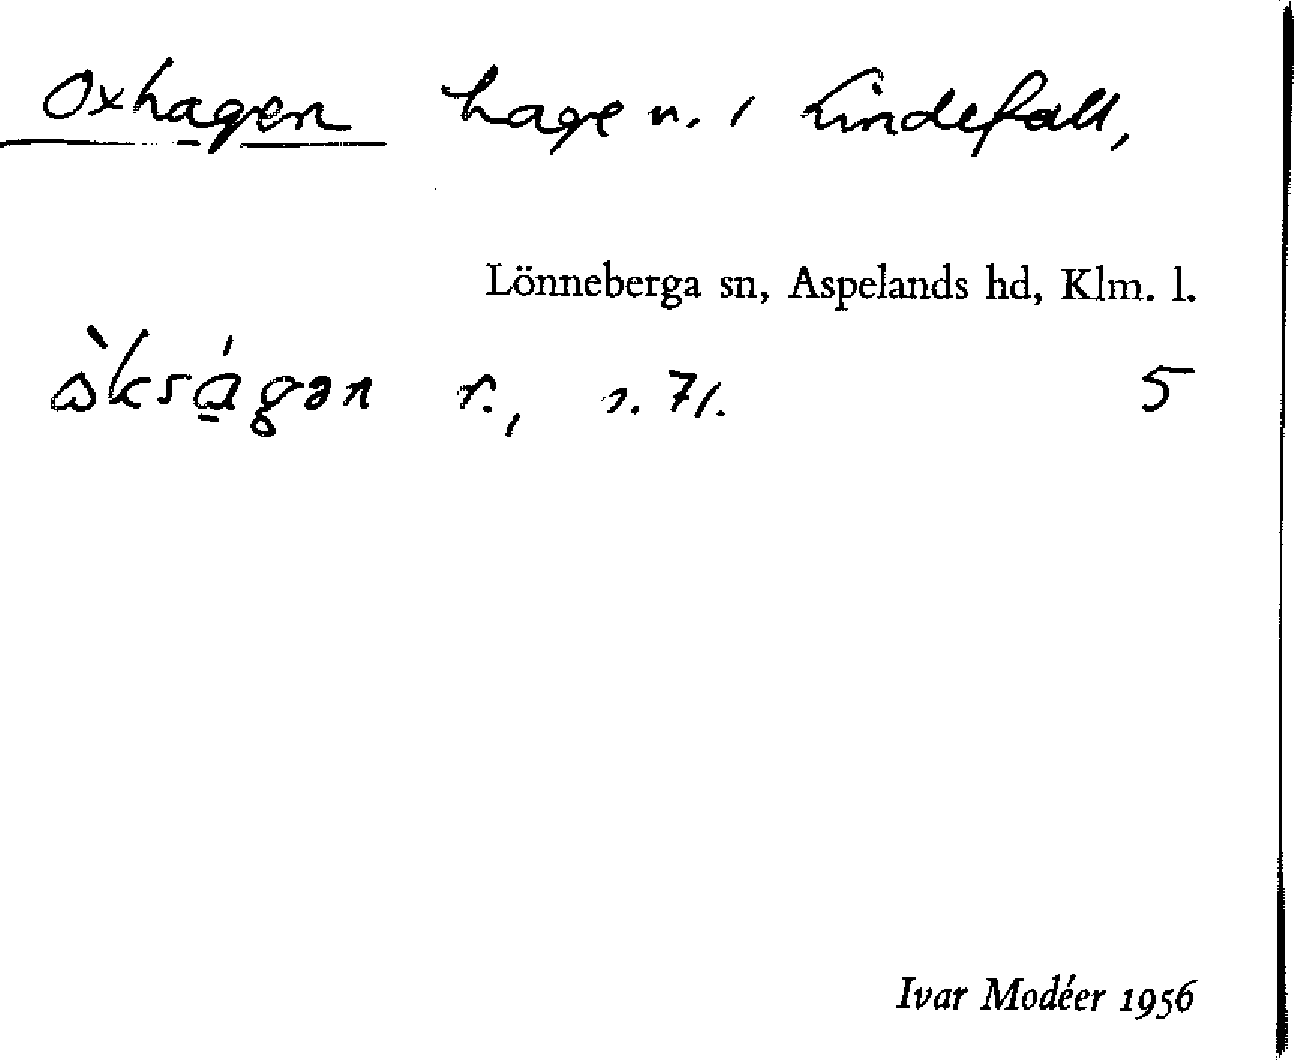 Oxhagen hage n. i Lindefall,
Lönneberga sn, Aspelands hd, Klm. l.
ɷ̀kságən r., s. 71. 5
Ivar Modéer 1956